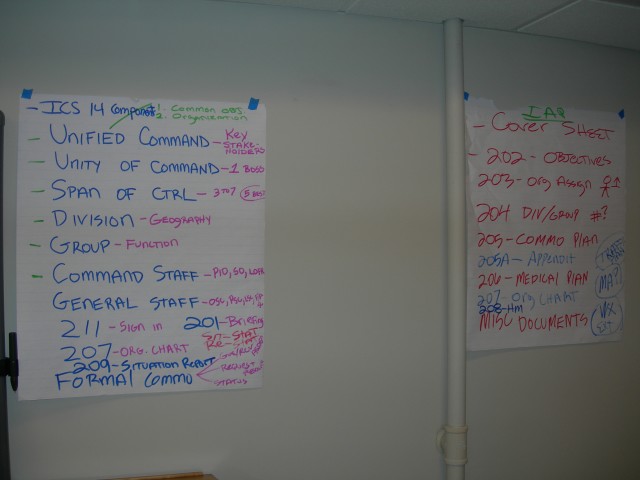 - ICS 14 Components 1. Common OBJS
2. Organization
- Unified Command - Key
Stake-
holders
- Unity of Command - 1 Boss
- Span of Ctrl - 3 to 7
- Division - Geography
- Group - Function
- Command Staff - PIO, SO, LOFR
General Staff - OSC, PSC,
211 - Sign in 201 - Briefing
207 - Org. Chart
209 - Situation Report
Formal Commo
Status
IAP
- Cover Sheet
- 202 - Objectives
203 - Org Assign
204 Div/Group #?
205 - Commo Plan
205A - Appendix
206 - Medical Plan
MAP
207 - Org Chart
208 - HM
Misc Documents